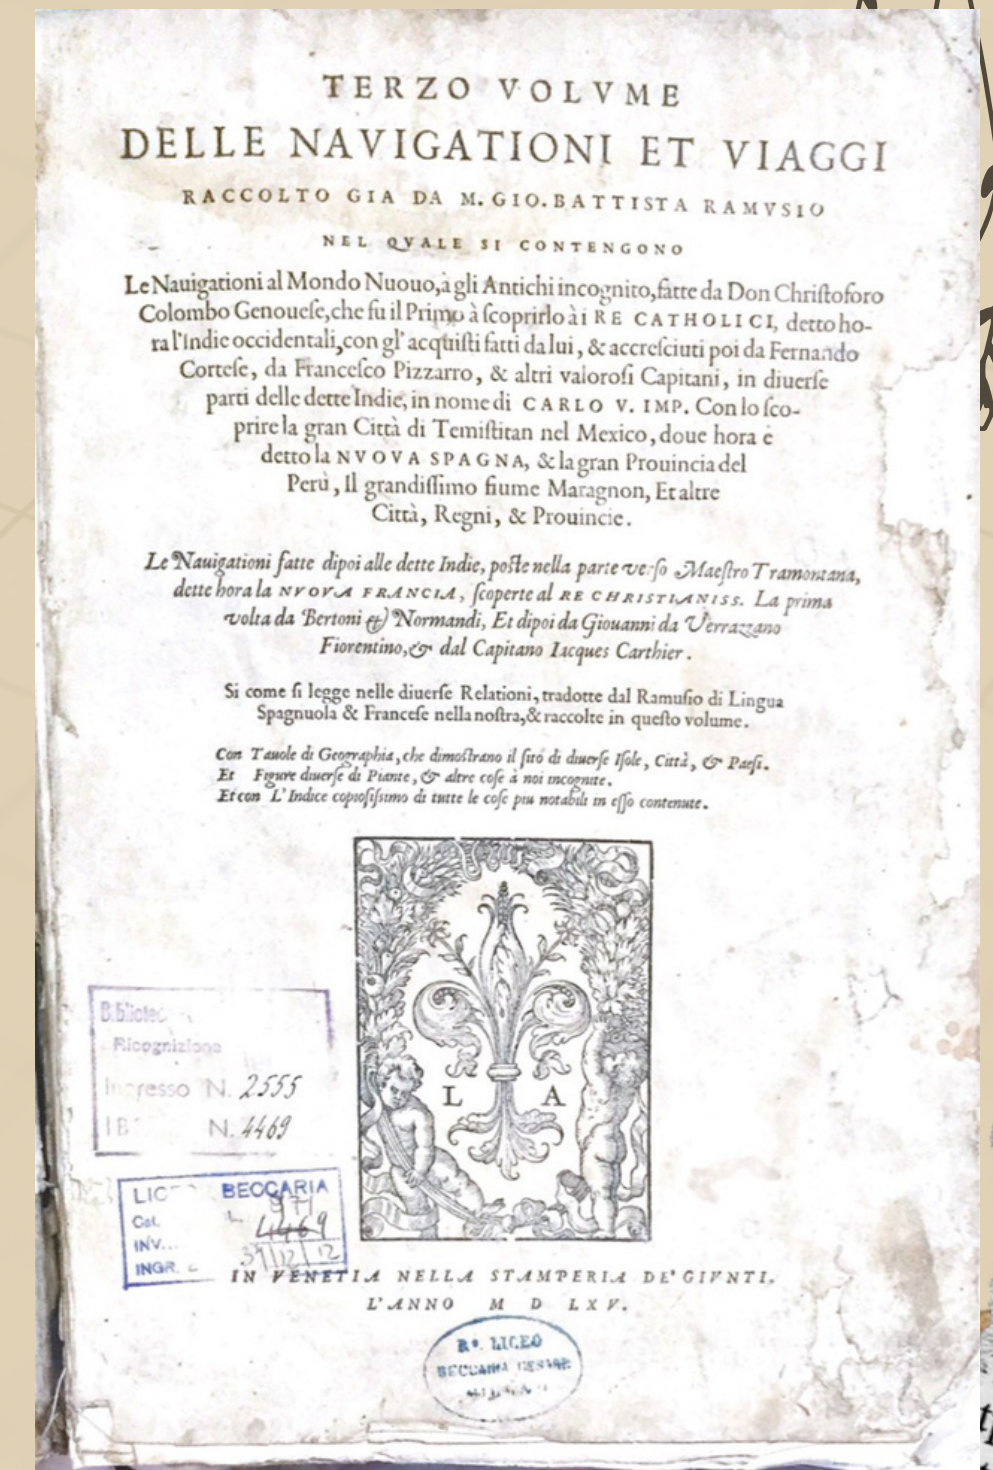 TERZO VOLVME
DELLE NAVIGATIONI ET VIAGGI
RACCOLTO GIA DA M. GIO. BATTISTA RAMVSIO
NEL QVALE SI CONTENGONO
Le Nauigationi al Mondo Nuouo, à gli Antichi incognito, fatte da Don Chriſtoforo
Colombo Genoueſe, che fu il Primo à ſcoprirlo à i RE CATHOLICI, detto ho-
ra l'Indie occidentali, con gl' acquiſti fatti da lui, & accreſciuti poi da Fernando
Corteſe, da Franceſco Pizzarro, & altri valoroſi Capitani, in diuerſe
parti delle dette Indie, in nome di CARLO V. IMP. Con lo ſco-
prire la gran Città di Temiſtitan nel Mexico, doue hora è
detto la NVOVA SPAGNA, & la gran Prouincia del
Perù, Il grandiſſimo fiume Maragnon, Et altre
Città, Regni, & Prouincie.
Le Nauigationi fatte dipoi alle dette Indie, poſte nella parte verſo Maeſtro Tramontana,
dette hora la NVOVA FRANCIA, ſcoperte al RE CHRISTIANISS. La prima
volta da Bertoni & Normandi, Et dipoi da Giouanni da Verrazzano
Fiorentino, & dal Capitano Iacques Carthier.
Si come ſi legge nelle diuerſe Relationi, tradotte dal Ramuſio di Lingua
Spagnuola & Franceſe nella noſtra, & raccolte in queſto volume.
Con Tauole di Geographia, che dimoſtrano il ſito di diuerſe Iſole, Città, & Paeſi.
Et Figure diuerſe di Piante, & altre coſe à noi incognite.
Et con L'Indice copioſiſsimo di tutte le coſe piu notabili in eſſo contenute.
L A
Ricognizione
N. 2555
N. 4469
BECCARIA
Cat. L. 4469
INV...
INGR. 31 12 12
IN VENETIA NELLA STAMPERIA DE' GIVNTI.
L'ANNO M D LXV.
Rº. LICEO
BECCARIA